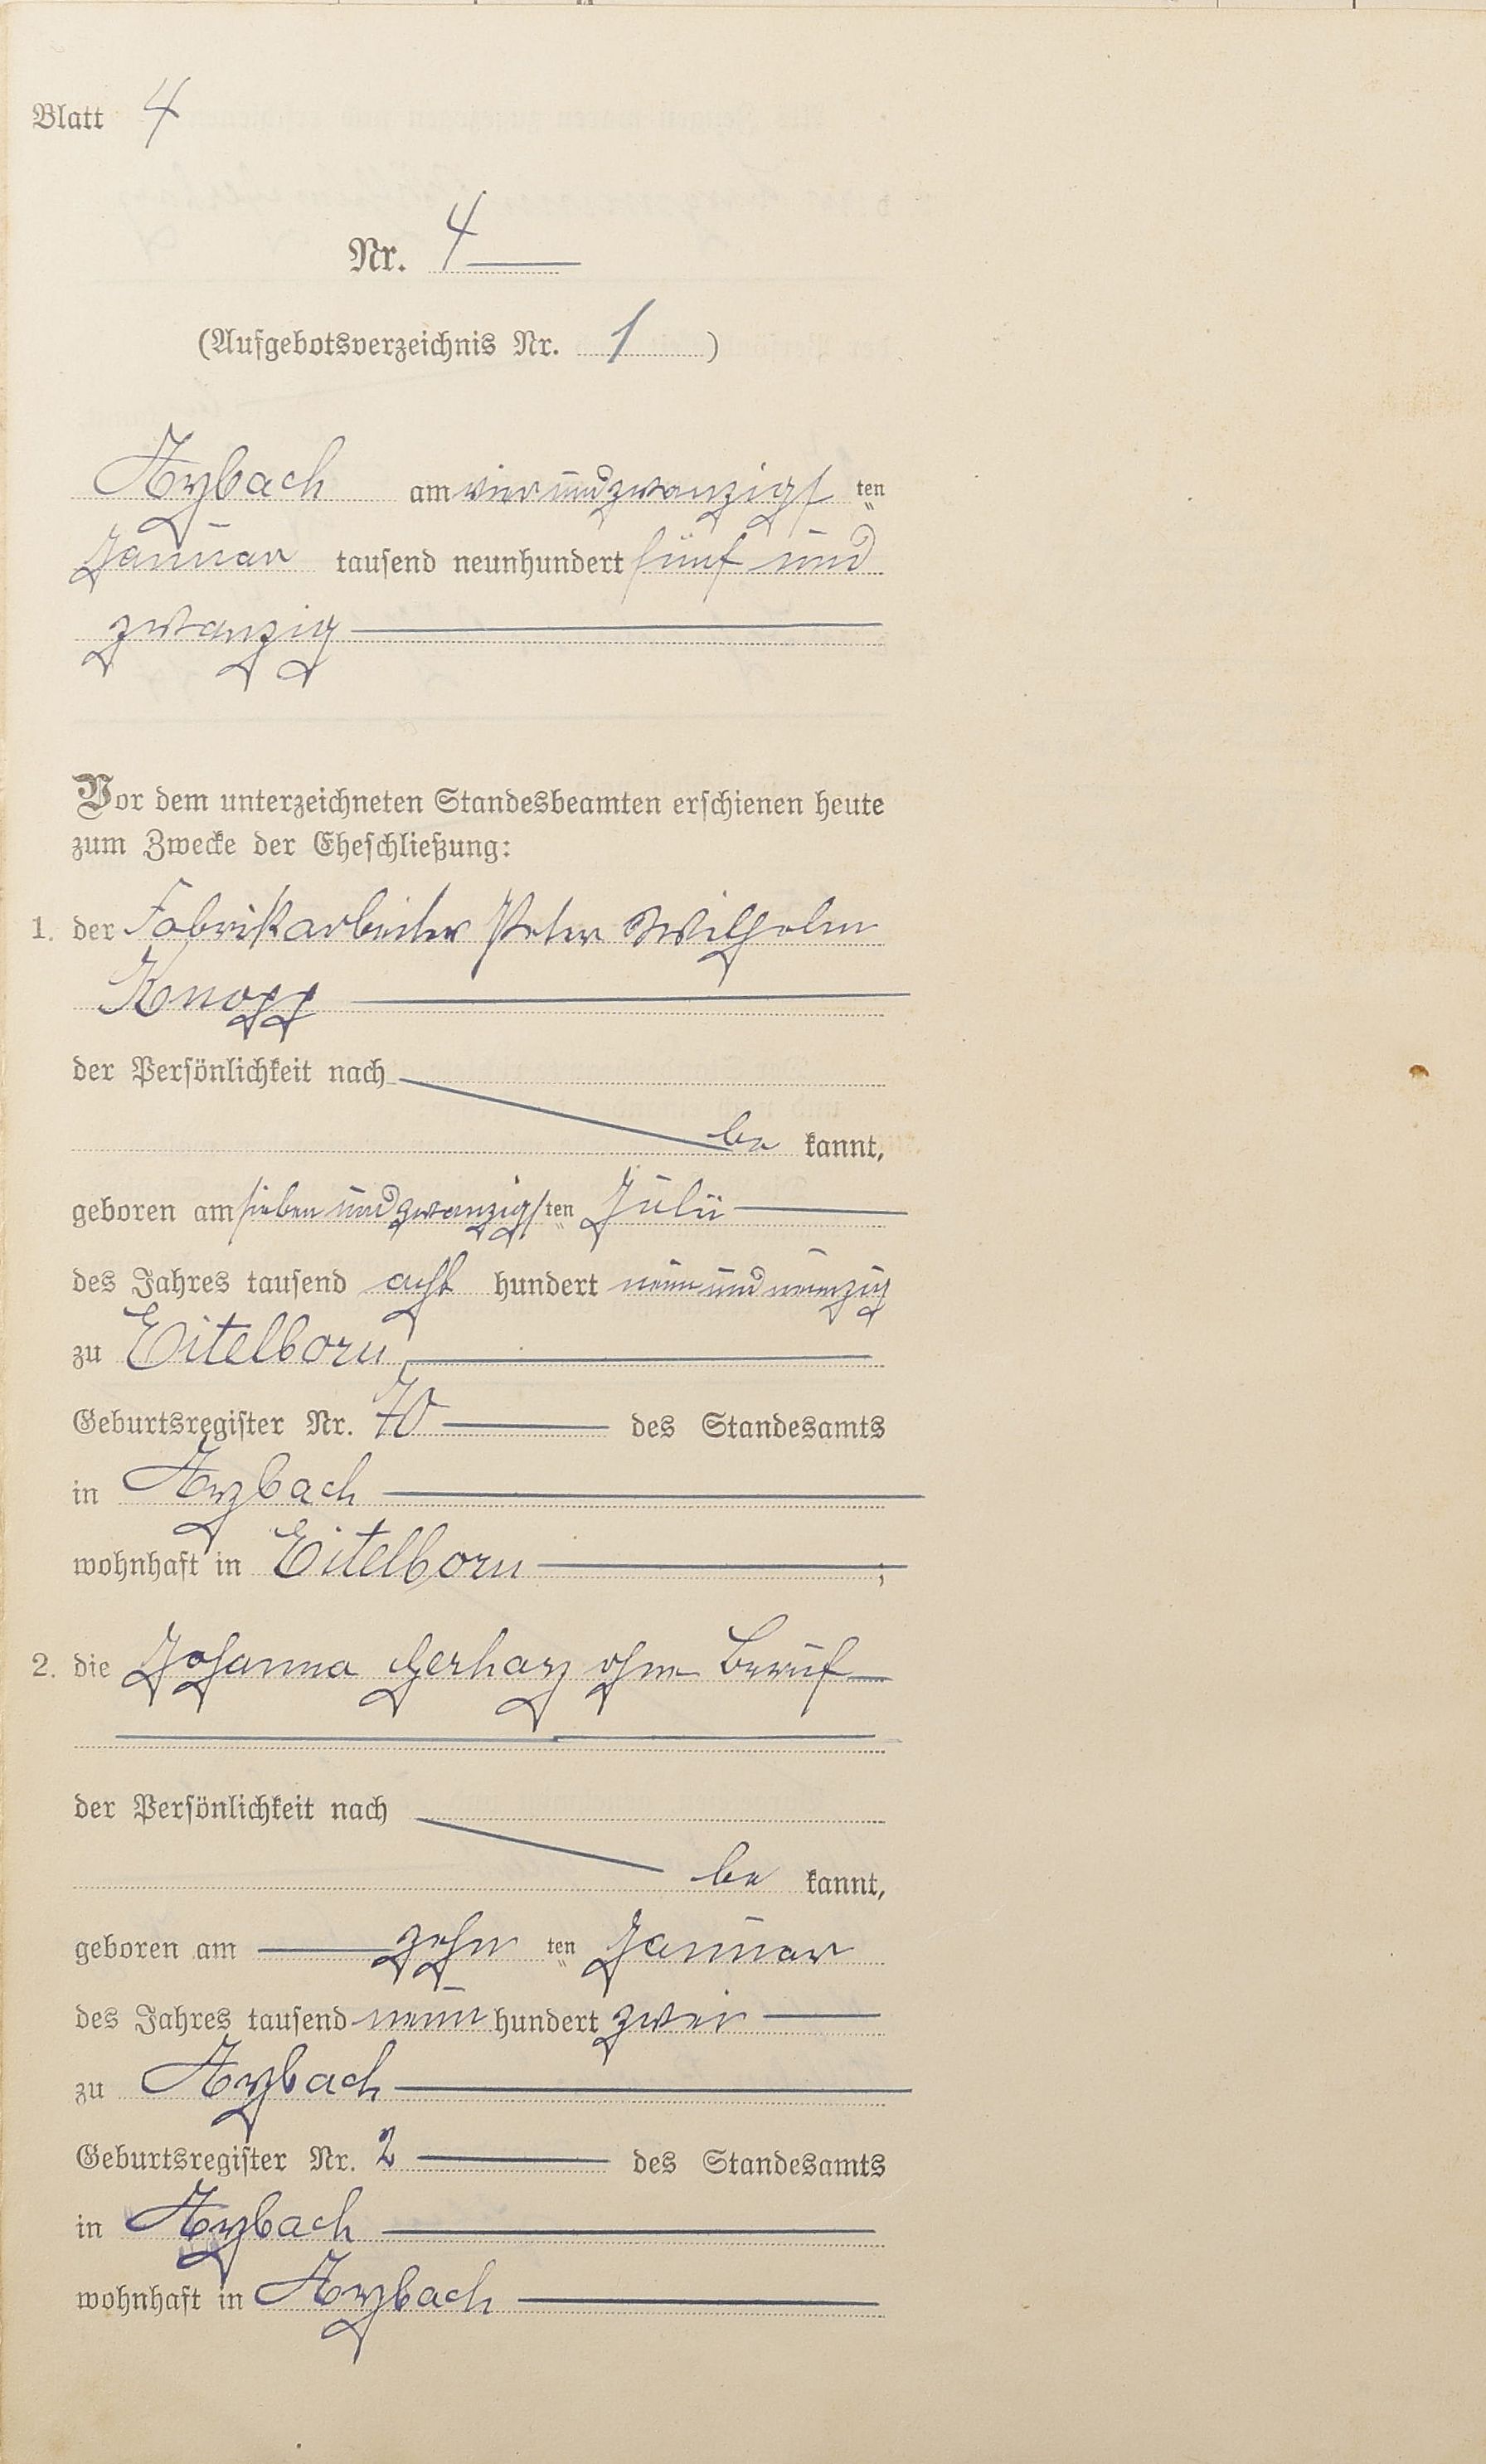 Blatt 4
Nr. 4
(Aufgebotsverzeichnis Nr. 1)
Arzbach am vierundzwanzigsten
Januar tausend neunhundert fünf und
zwanzig
Vor dem unterzeichneten Standesbeamten erschienen heute
zum Zwecke der Eheschließung:
1. der Fabrikarbeiter Peter Wilhelm
Knopp
der Persönlichkeit nach
be kannt,
geboren am siebenundzwanzigsten Juli
des Jahres tausend acht hundert neunundneunzig
zu Eitelborn
Geburtsregister Nr. 70 des Standesamts
in Arzbach
wohnhaft in Eitelborn ;
2. die Johanna Gerharz ohne Beruf
der Persönlichkeit nach
be kannt,
geboren am zehn ten Januar
des Jahres tausend neun hundert zwei
zu Arzbach
Geburtsregister Nr. 2 des Standesamts
in Arzbach
wohnhaft in Arzbach